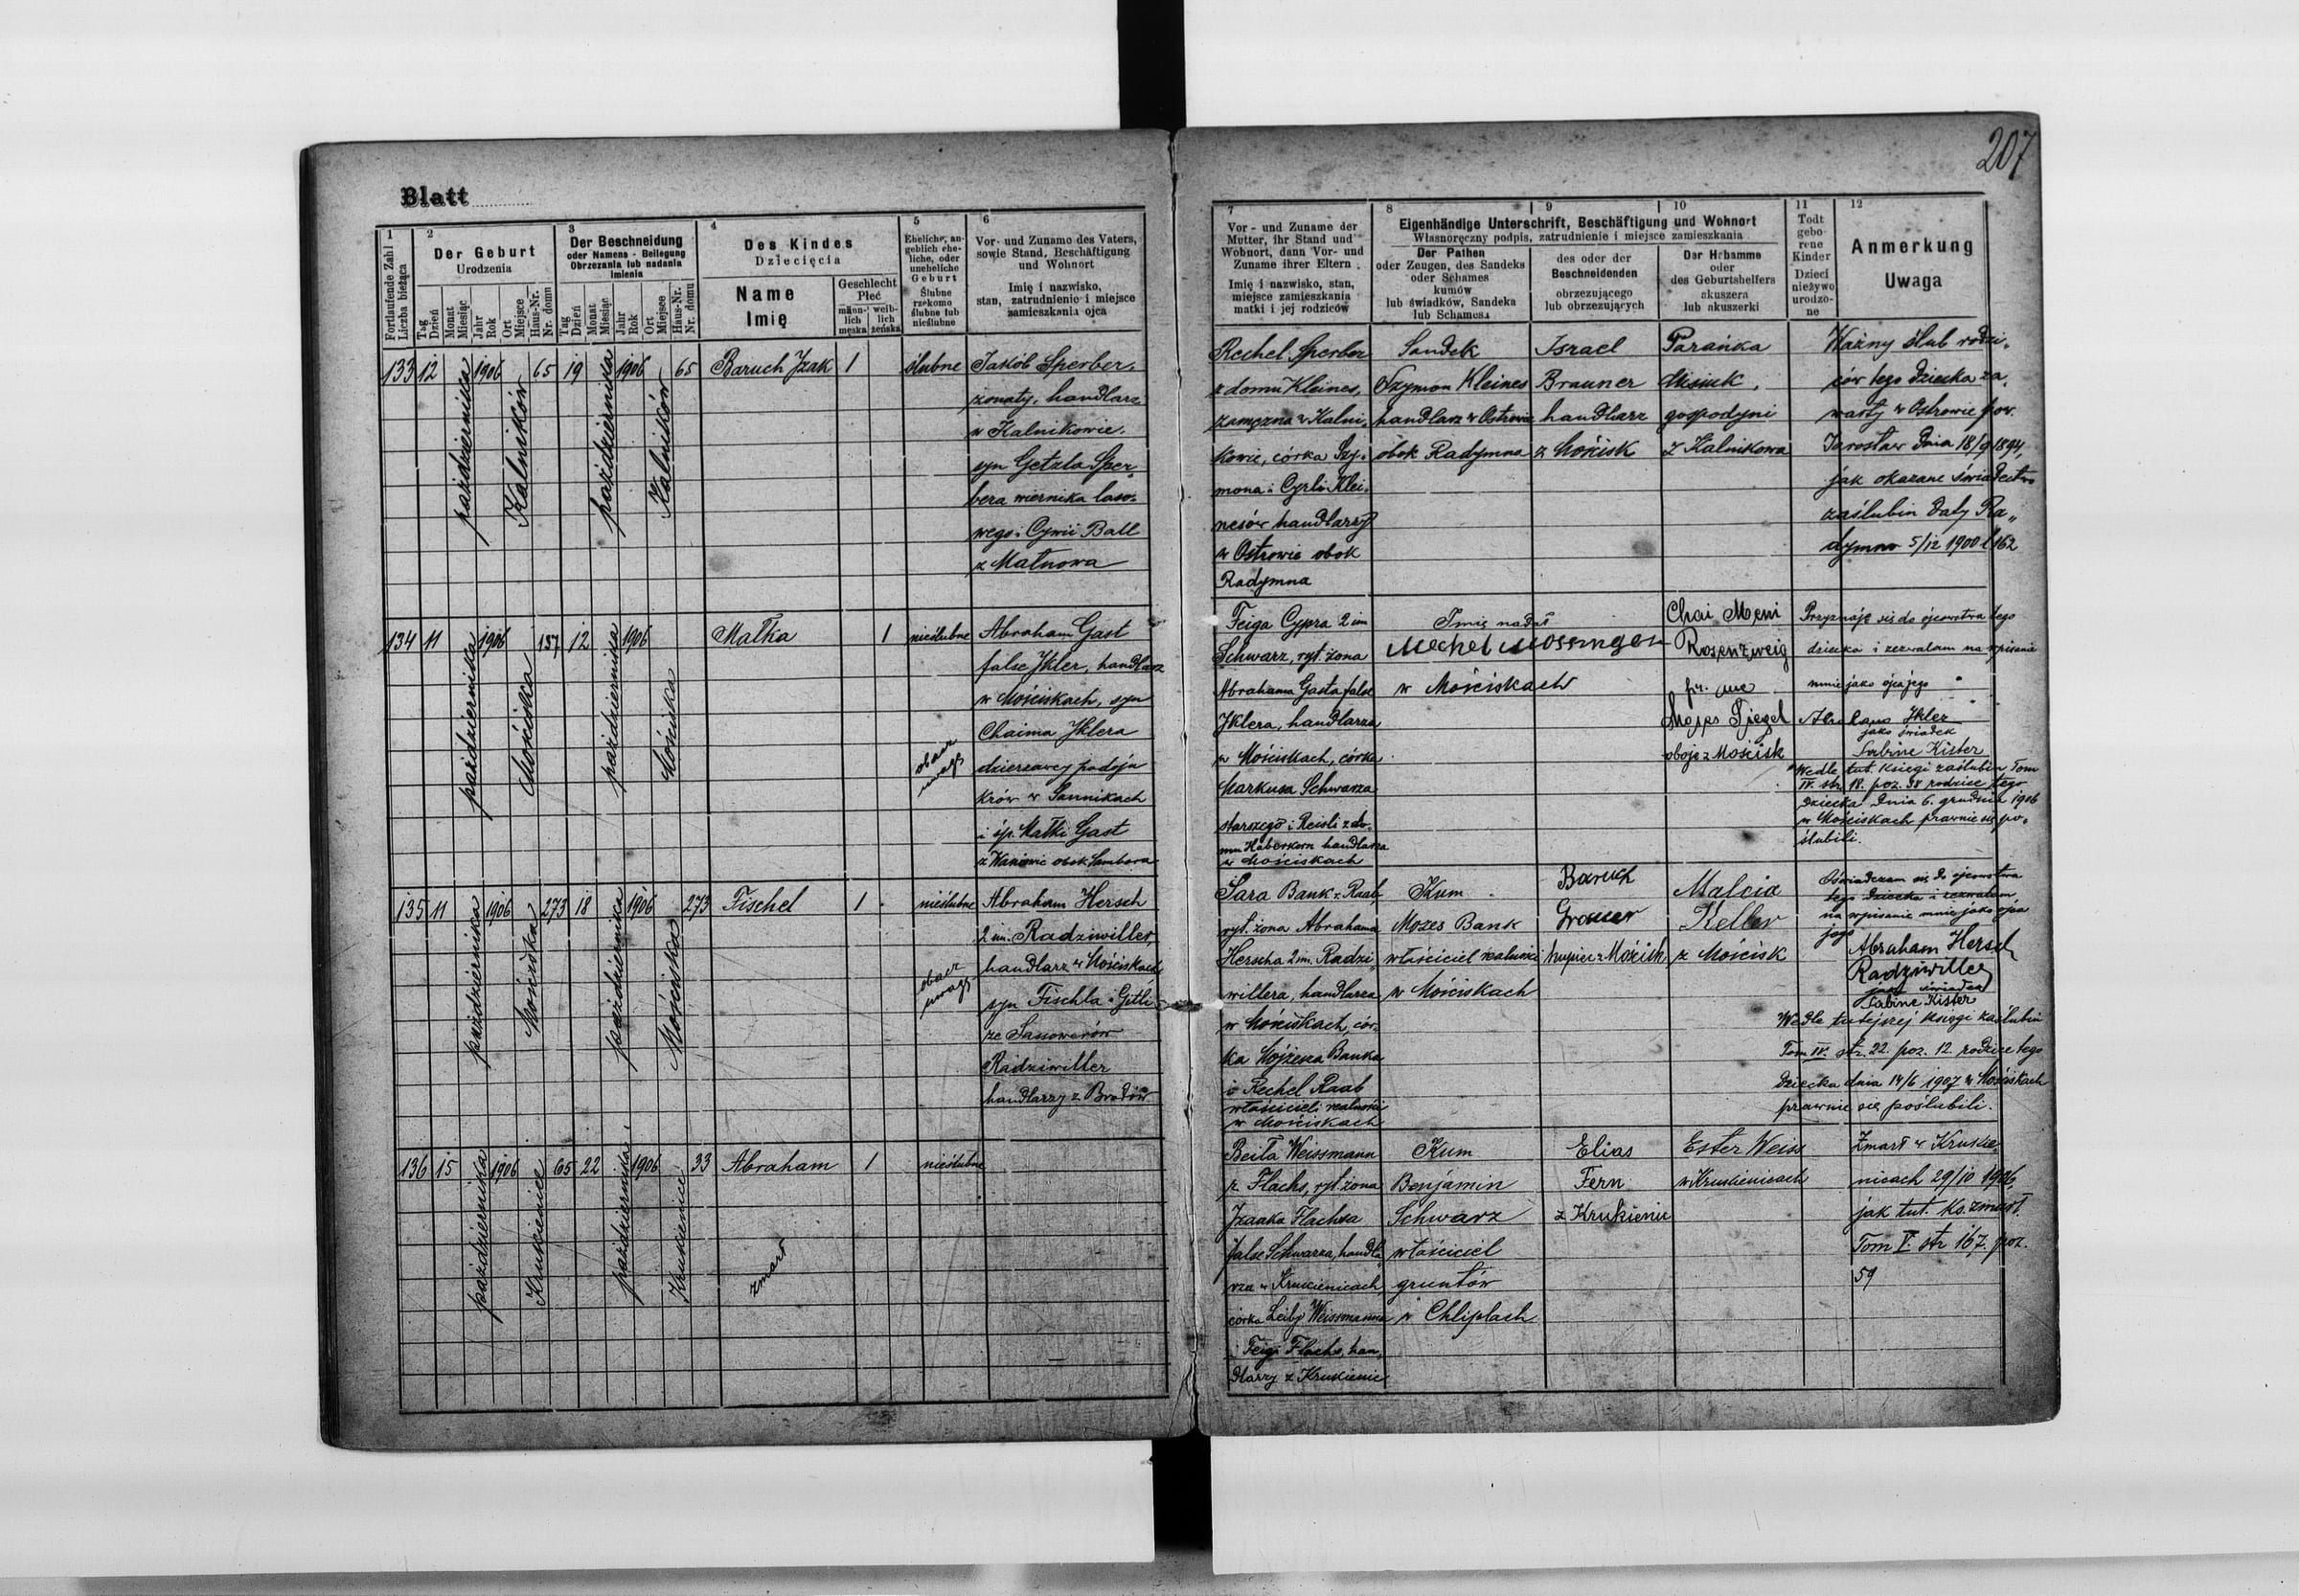 207
Blatt
1
Fortlaufende Zahl
Liczba bieżąca
2
Der Geburt
Urodzenia
Tag
Dzień
Monat
Miesiąc
Jahr
Rok
Ort
Miejsce
Haus-Nr.
Nr. domu
3
Der Beschneidung
oder Namens - Beilegung
Obrzezania lub nadania
imienia
Tag
Dzień
Monat
Miesiąc
Jahr
Rok
Ort
Miejsce
Haus-Nr.
Nr. domu
4
Des Kindes
Dziecięcia
Name
Imię
Geschlecht
Płeć
männ-
lich
męska
weib-
lich
żeńska
5
Eheliche, an-
geblich ehe-
liche, oder
uneheliche
Geburt
Ślubne
rzekomo
ślubne lub
nieślubne
6
Vor- und Zuname des Vaters,
sowie Stand, Beschäftigung
und Wohnort
Imię i nazwisko,
stan, zatrudnienie i miejsce
zamieszkania ojca
7
Vor- und Zuname der
Mutter, ihr Stand und
Wohnort, dann Vor- und
Zuname ihrer Eltern
Imię i nazwisko, stan,
miejsce zamieszkania
matki i jej rodziców
8
9
10
Eigenhändige Unterschrift, Beschäftigung und Wohnort
Własnoręczny podpis, zatrudnienie i miejsce zamieszkania
Der Pathen
oder Zeugen, des Sandeks
oder Schames
kumów
lub świadków, Sandeka
lub Schamesa
des oder der
Beschneidenden
obrzezującego
lub obrzezujących
Der Hebamme
oder
des Geburtshelfers
akuszera
lub akuszerki
11
Todt
gebo-
rene
Kinder
Dzieci
nieżywo
urodzo-
ne
12
Anmerkung
Uwaga
133 12 października 1906 Kalników 65 19 października 1906 Kalników 65 Baruch Izak 1 ślubne
Jakób Sperber,
żonaty, handlarz
w Kalnikowie,
syn Getzla Sper-
bera wiernika laso-
wego i Cywii Ball
z Małnowa
Rechel Sperber
z domu Kleines,
zamężna w Kalni-
kowie, córka Szy-
mona i Cyrli Klei-
nesów handlarzy
w Ostrowie obok
Radymna
Sandek
Szymon Kleines
handlarz w Ostrowie
obok Radymna
Israel
Brauner
handlarz
z Mościsk
Parańka
Misiuk
gospodyni
z Kalnikowa
Ważny ślub rodzi-
ców tego dziecka za-
warty w Ostrowie pow.
Jarosław dnia 18/9 1894,
jak okazane świadectwo
zaślubin daty Ra-
dymno 5/12 1900 l 162
134 11 października 1906 Mościska 137 12 października 1906 Mościska Małka 1 nieślubne
obacz
uwagę
Abraham Gast
false Ikler, handlarz
w Mościskach, syn
Chaima Iklera
dzierżawcy podoju
krów w Sannikach
i śp. Małki Gast
obok Sambora
Feiga Cypra 2 im
Schwarz, ryt. żona
Abrahama Gasta false
Iklera, handlarza
w Mościskach, córka
Markusa Schwarza
starszego i Reisli z do-
mu Haberkorn handlarza
w Mościskach
Imię nadał
w Mościskach
Rosenzweig
oboje z Mościsk
Przyznaję się do ojcowstwa tego
dziecka i zezwalam na wpisanie
mnie jako ojca jego
Abraham Ikler
jako świadek
Sabine Kister
Wedle tut. księgi zaślubin Tom
IV. str. 18. poz. 38 rodzice tego
dziecka dnia 6. grudnia 1906
w Mościskach prawnie się po-
ślubili.
135 11 października 1906 Mościska 273 18 października 1906 Mościska 273 Fischel 1 nieślubne
obacz
uwagę
Abraham Hersch
2 im. Radziwiller,
handlarz w Mościskach
syn Fischla i Gitli
ze Sassowerów
Radziwiller
handlarzy z Brodów
Sara Bank v. Raab
ryt. żona Abrahama
Herscha 2 im. Radzi-
willera, handlarza
w Mościskach, cór-
ka Mojżesza Banka
i Rechel Raab
właścicieli realności
w Mościskach
Kum
Mozes Bank
właściciel realności
w Mościskach
Baruch
kupiec z Mościsk
Malcia
Keller
z Mościsk
Oświadczam się do ojcowstwa
tego dziecka i zezwalam
na wpisanie mnie jako ojca
jego
Abraham Hersch
Radziwiller
jako świadek
Sabine Kister
Wedle tutejszej księgi zaślubin
Tom IV. str. 22. poz. 12. rodzice tego
dziecka dnia 14/6 1907 w Mościskach
prawnie się poślubili.
136 15 października 1906 Krukienice 65 22 października 1906 Krukienice 33 Abraham 1 nieślubne
zmarł
Beila Weissmann
v. Flachs, ryt. żona
Izaaka Flachsa
false Schwarza, handla-
rza w Krukienicach,
córka Leiby Weissmanna
i Feigi Flachs, han-
dlarzy z Krukienic
Kum
Benjamin
Schwarz
właściciel
gruntów
w Chliplach
Elias
Fern
z Krukienic
Ester Weiss
w Krukienicach
Zmarł w Krukie-
nicach 29/10 1906,
jak tut. ks. zmarł.
Tom V. str 167. poz.
59